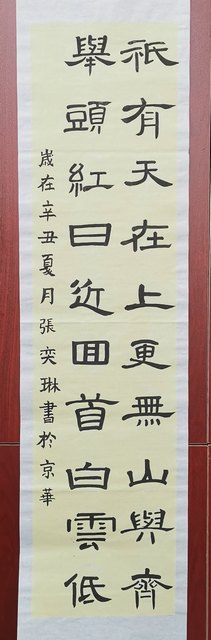 祇有天在上更無山與齊
舉頭紅日近回首白雲低
歲在辛丑夏月張奕琳書於京華